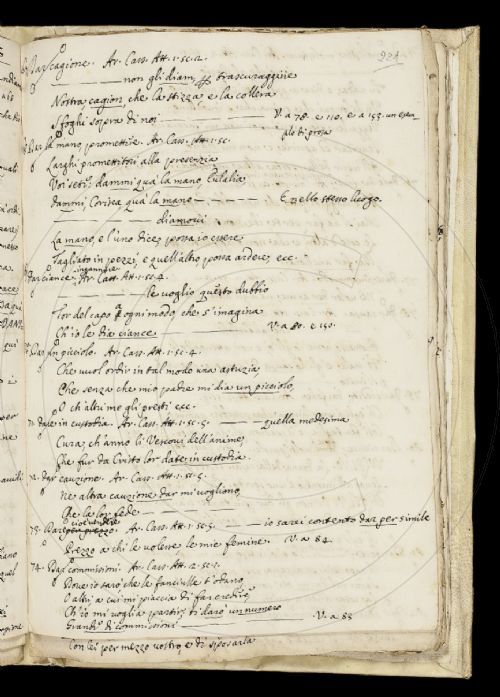 221
Dar cagione. Ar. Cass. Att. 1. sc. 2.
non gli diam, per trascuraggine
Nostra cagion, che la stizza e la collera
Sfoghi sopra di noi V. a 78. e 110. e a 153. un esem-
pio di prosa
Dar la mano, promettere. Ar. Cass. Att. 1. sc.
Larghi promettitori alla presenzia
Voi sete: dammi quà la mano, Eulalia,
dammi, Corisca quà la mano E nello stesso luogo.
diamovi
La mano, e l'uno dice, possa io essere
Tagliato in pezzi, e quell'altro possa ardere, ecc.
Dar ciance, ingannare. Ar. Cass. Att. 1. sc. 4.
le voglio questo dubbio
Tor del capo a ogni modo, che s'imagina
Ch'io le dia ciance V. a 80. e 150.
Dar un picciolo. Ar. Cass. Att. 1. sc. 4.
Che vuol ordir in tal modo una astuzia
Che senza che mio padre mi dia un picciolo,
O ch'altri me gli presti ecc.
dare in custodia. Ar. Cass. Att. 1. sc. 5. quella medesima
Cura, ch'anno li Vescovi dell'anime,
Che fur da Cristo lor date in custodia.
dar cauzione. Ar. Cass. Att. 1. sc. 5.
Ne altra cauzione dar mi vogliono
Che la lor fede
73. Dare per prezzo. cioè vendere Ar. Cass. Att. 1. sc. 5. io sarei contento dar per simile
Prezzo a chi le volesse le mie femine. V. a 84.
74. Dar commissioni. Ar. Cass. Att. 2. sc. 1.
Dove io sarò che le fanciulle
O altri a cui mi piaccia di far credito
Ch'io mi voglia partir, ti darò un numero
Grande di commissioni V. a 83
Con lei per mezzo vostro, e di sposarla